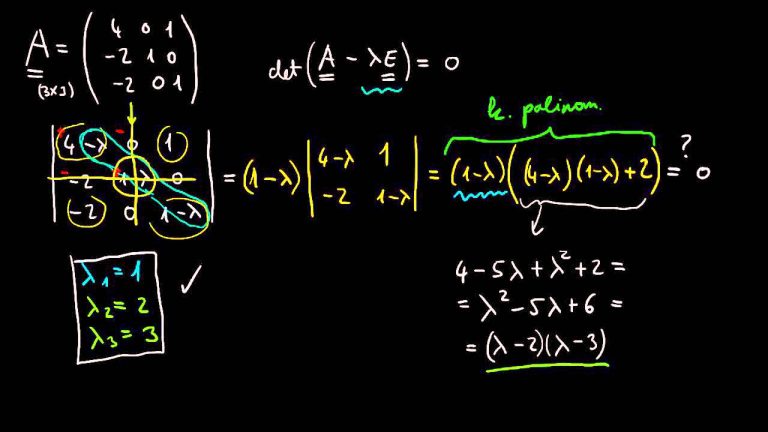 A = ( 4 0 1
-2 1 0
-2 0 1 )
(3x3)
det(A - λE) = 0
k. polinom.
| 4-λ 0 1 |
| -2 1-λ 0 |
| -2 0 1-λ |
= (1-λ) | 4-λ 1 |
| -2 1-λ |
= (1-λ)((4-λ)(1-λ)+2) = 0
?
4-5λ+λ²+2 =
= λ²-5λ+6 =
= (λ-2)(λ-3)
λ₁ = 1 ✓
λ₂ = 2
λ₃ = 3